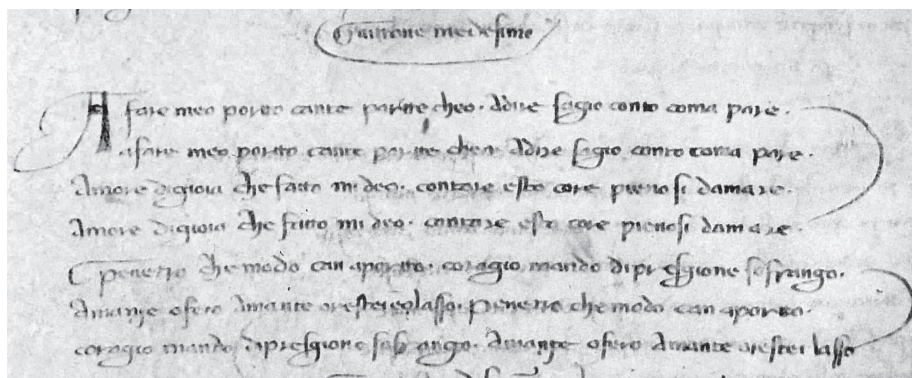 Guittone medesimo
A fare meo porto cante parire cheo. Adire sagio conto coma pare.
afare meo porto cante parire cheo Adire sagio conto coma pare.
Amore digioia che fatto mi deo. contare esto core pieno si damare.
Amore digioia che fatto mi deo. contare esto core pieno si damare.
Penetro che modo can aporto. coragio mando dipresgione sosfrango.
Amante ofero Amante orestei lasso. penetro che modo can aporto.
coragio mando dipresgione sosfrango. Amante ofero Amante orestei lasso